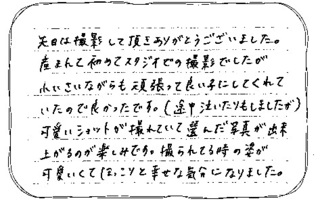 先日は撮影して頂きありがとうございました。
産まれて初めてスタジオでの撮影でしたが
小いさいながらも頑張って良い子にしてくれて
いたので良かったです。(途中泣いたりもしましたが)
可愛いショットが撮れていて選んだ写真が出来
上がるのが楽しみです。撮られてる時の姿が
可愛いくてほっこりと幸せな気分になりました。